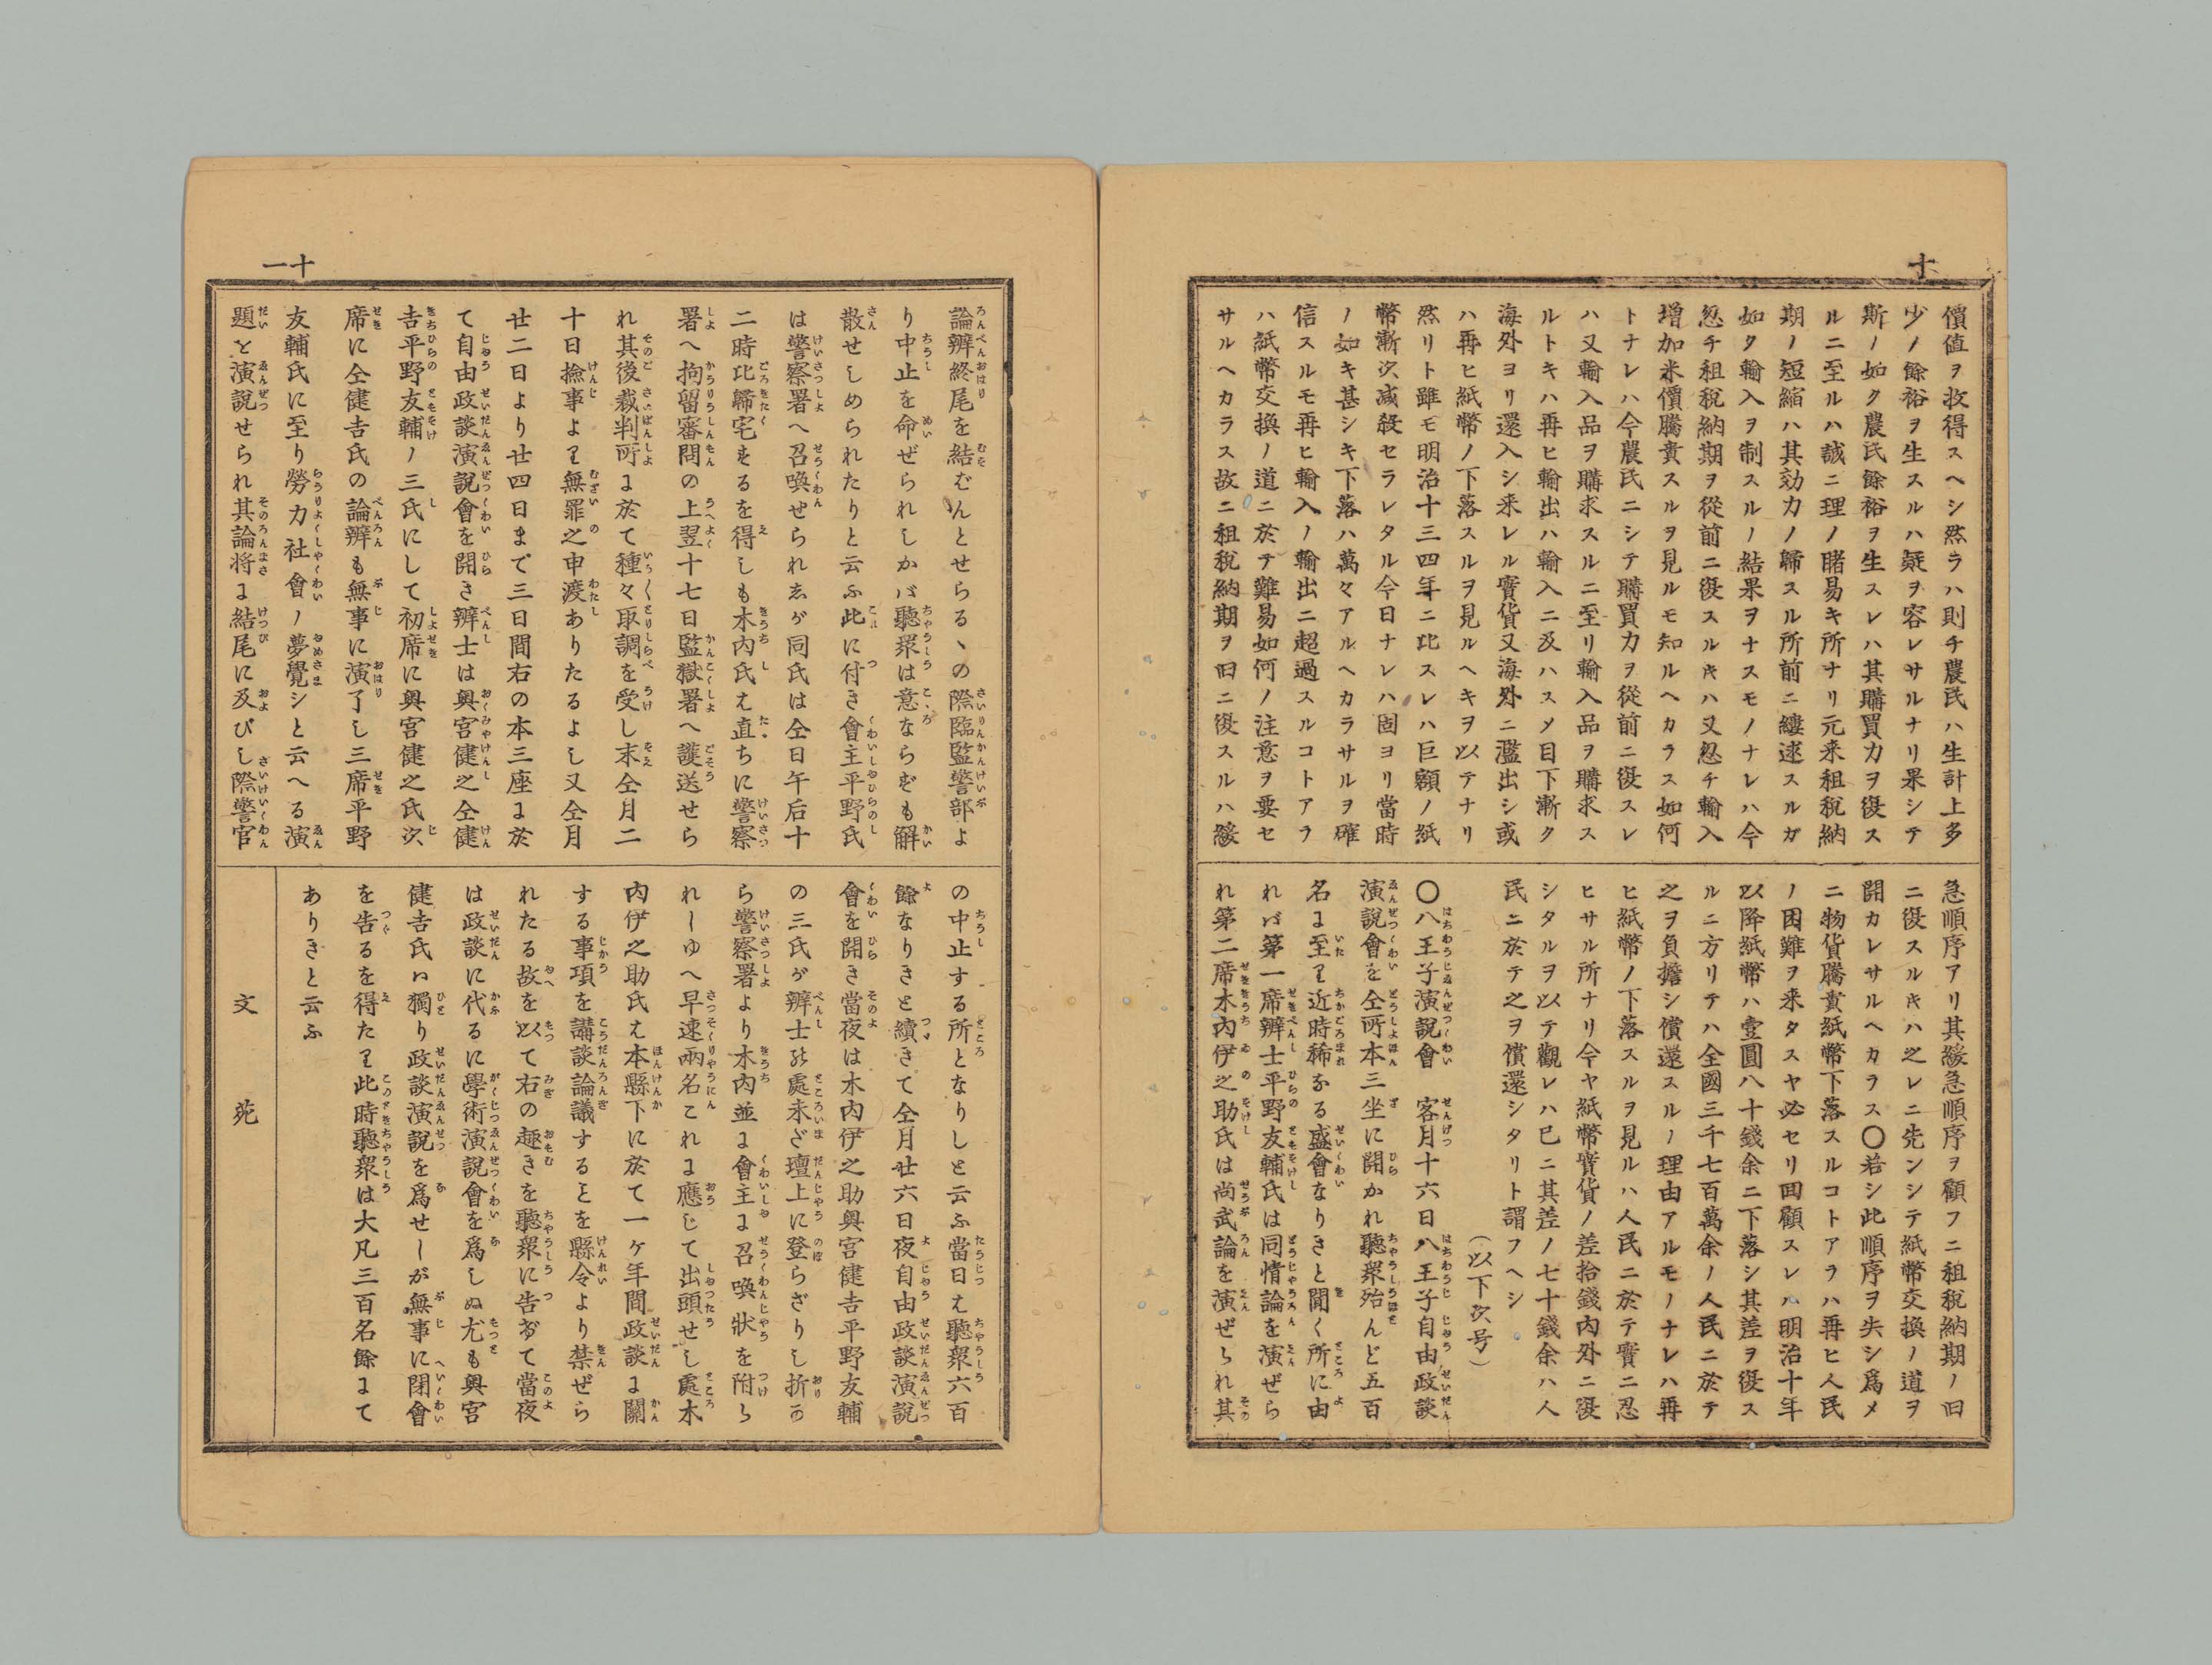 十
價値ヲ收得スヘシ然ラハ則チ農民ハ生計上多
少ノ餘裕ヲ生スルハ疑ヲ容レサルナリ果シテ
斯ノ如ク農民餘裕ヲ生スレハ其購買力ヲ復ス
ルニ至ルハ誠ニ理ノ睹易キ所ナリ元来租税納
期ノ短縮ハ其効力ノ歸スル所前ニ縷述スルガ
如ク輸入ヲ制スルノ結果ヲナスモノナレハ今
忽チ租税納期ヲ從前ニ復スルキハ又忽チ輸入
増加米價騰貴スルヲ見ルモ知ルヘカラス如何
トナレハ今農民ニシテ購買力ヲ從前ニ復スレ
ハ又輸入品ヲ購求スルニ至リ輸入品ヲ購求ス
ルトキハ再ヒ輸出ハ輸入ニ及ハスメ目下漸ク
海外ヨリ還入シ来レル實貨又海外ニ濫出シ或
ハ再ヒ紙幣ノ下落スルヲ見ルヘキヲ以テナリ
然リト雖モ明治十三四年ニ比スレハ巨額ノ紙
幣漸次减殺セラレタル今日ナレハ固ヨリ當時
ノ如キ甚シキ下落ハ萬々アルヘカラサルヲ確
信スルモ再ヒ輸入ノ輸出ニ超過スルコトアラ
ハ紙幣交換ノ道ニ於テ難易如何ノ注意ヲ要セ
サルヘカラス故ニ租税納期ヲ旧ニ復スルハ緩
急順序アリ其緩急順序ヲ顧フニ租税納期ノ旧
ニ復スルキハ之レニ先ンシテ紙幣交換ノ道ヲ
開カレサルヘカラス〇若シ此順序ヲ失シ爲メ
ニ物貨騰貴紙幣下落スルコトアラハ再ヒ人民
ノ困難ヲ来タスヤ必セリ回顧スレハ明治十年
以降紙幣ハ壹圓八十錢余ニ下落シ其差ヲ復ス
ルニ方リテハ全國三千七百萬余ノ人民ニ於テ
之ヲ負擔シ償還スルノ理由アルモノナレハ再
ヒ紙幣ノ下落スルヲ見ルハ人民ニ於テ實ニ忍
ヒサル所ナリ今ヤ紙幣實貨ノ差拾錢内外ニ復
シタルヲ以テ觀レハ已ニ其差ノ七十錢余ハ人
民ニ於テ之ヲ償還シタリト謂フヘシ
（以下次号）
〇八王子演說會　客月十六日八王子自由政談
演說會を仝所本三坐に開かれ聽衆殆んど五百
名ま至里近時稀なる盛會なりきと聞く所に由
れバ第一席辨士平野友輔氏は同情論を演ぜら
れ第二席木内伊之助氏は尚武論を演ぜられ其
十一
論辨終尾を結ばんとせらるゝの際臨監警部よ
り中止を命ぜられしかバ聽衆は意ならずも解
散せしめられたりと云ふ此に付き會主平野氏
は警察署へ召喚せられゑが同氏は仝日午后十
二時比歸宅するを得しも木内氏え直ちに警察
署へ拘留審問の上翌十七日監獄署へ護送せら
れ其後裁判所ま於て種々取調を受し末仝月二
十日撿事よ里無罪之申渡ありたるよし又仝月
廿二日より廿四日まで三日間右の本三座ま於
て自由政談演說會を開き辨士は奥宮健之仝健
吉平野友輔ノ三氏にして初席に奥宮健之氏次
席に仝健吉氏の論辨も無事に演了し三席平野
友輔氏に至り勞力社會ノ夢覺シと云へる演
題を演說せられ其論将ま結尾に及びし際警官
の中止する所となりしと云ふ當日え聽衆六百
餘なりきと續きて仝月廿六日夜自由政談演說
會を開き當夜は木内伊之助奥宮健吉平野友輔
の三氏が辨士ゟ處未ざ壇上に登らざりし折か
ら警察署より木内並ま會主ま召喚狀を附ら
れしゆへ早速兩名これま應じて出頭せし處木
内伊之助氏え本縣下に於て一ケ年間政談ま關
する事項を講談論議するとを縣令より禁ぜら
れたる故を以て右の趣きを聽衆に告げて當夜
は政談に代るに學術演說會を爲しぬ尤も奥宮
健吉氏ハ獨り政談演說を爲せしが無事に閉會
を告るを得た里此時聽衆は大凡三百名餘まて
ありきと云ふ
文苑